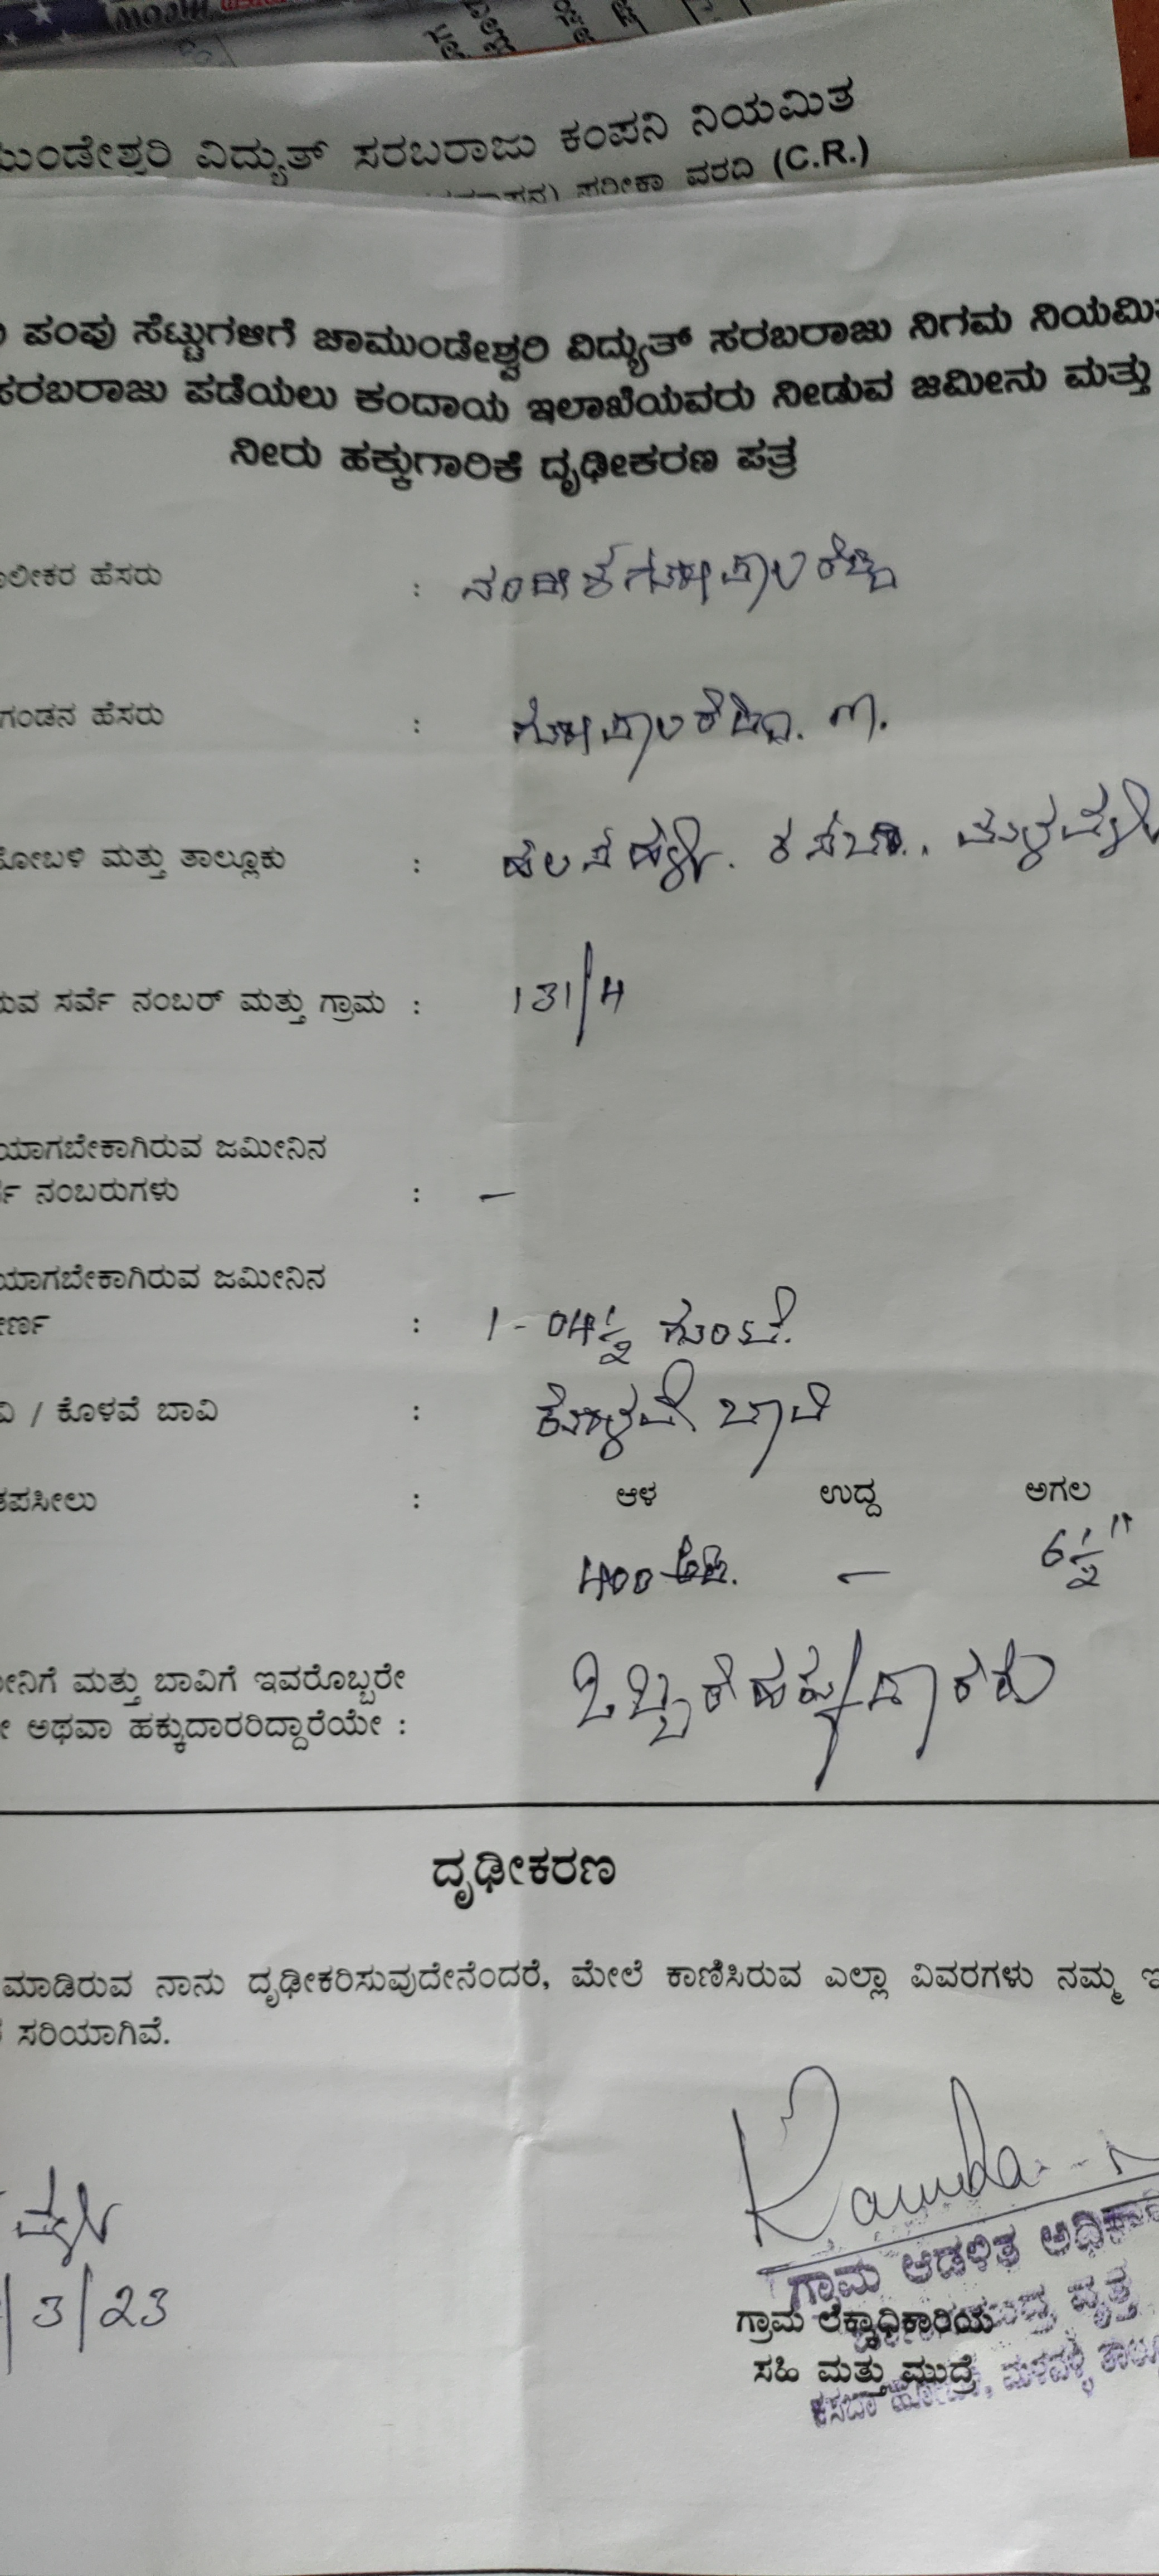 ಮುಂಡೇಶ್ವರಿ ವಿದ್ಯುತ್ ಸರಬರಾಜು ಕಂಪನಿ ನಿಯಮಿತ
ವರದಿ (C.R.)
ಪಂಪು ಸೆಟ್ಟುಗಳಿಗೆ ಚಾಮುಂಡೇಶ್ವರಿ ವಿದ್ಯುತ್ ಸರಬರಾಜು ನಿಗಮ ನಿಯಮಿ
ಸರಬರಾಜು ಪಡೆಯಲು ಕಂದಾಯ ಇಲಾಖೆಯವರು ನೀಡುವ ಜಮೀನು ಮತ್ತು
ನೀರು ಹಕ್ಕುಗಾರಿಕೆ ದೃಢೀಕರಣ ಪತ್ರ
ಲೀಕರ ಹೆಸರು :
ಗಂಡನ ಹೆಸರು :
ಹೋಬಳಿ ಮತ್ತು ತಾಲ್ಲೂಕು : ಕಸಬಾ., ಮಳ್ಳವಳ್ಳಿ
ರುವ ಸರ್ವೆ ನಂಬರ್ ಮತ್ತು ಗ್ರಾಮ : 131/4
ಯಾಗಬೇಕಾಗಿರುವ ಜಮೀನಿನ
ನಂಬರುಗಳು : –
ಯಾಗಬೇಕಾಗಿರುವ ಜಮೀನಿನ
ೀರ್ಣ : 1-04½ ಗುಂಟೆ.
ವಿ / ಕೊಳವೆ ಬಾವಿ : ಕೊಳವೆ ಬಾವಿ
ತಪಸೀಲು : ಆಳ ಉದ್ದ ಅಗಲ
400 ಅಡಿ. – 6½"
ೀನಿಗೆ ಮತ್ತು ಬಾವಿಗೆ ಇವರೊಬ್ಬರೇ ಒಬ್ಬರೆ ಹಕ್ಕುದಾರರು
ಅಥವಾ ಹಕ್ಕುದಾರರಿದ್ದಾರೆಯೇ :
ದೃಢೀಕರಣ
ಮಾಡಿರುವ ನಾನು ದೃಢೀಕರಿಸುವುದೇನೆಂದರೆ, ಮೇಲೆ ಕಾಣಿಸಿರುವ ಎಲ್ಲಾ ವಿವರಗಳು ನಮ್ಮ
ಸರಿಯಾಗಿವೆ.
/3/23
ಗ್ರಾಮ ಆಡಳಿತ ಅಧಿಕಾ
ವೃತ್ತ
ಗ್ರಾಮ ಲೆಕ್ಕಾಧಿಕಾರಿಯ
ಸಹಿ ಮತ್ತು ಮುದ್ರೆ
ಕಸಬಾ ಹೋಬಳಿ, ಮಳವಳ್ಳಿ ತಾಲ್ಲೂ